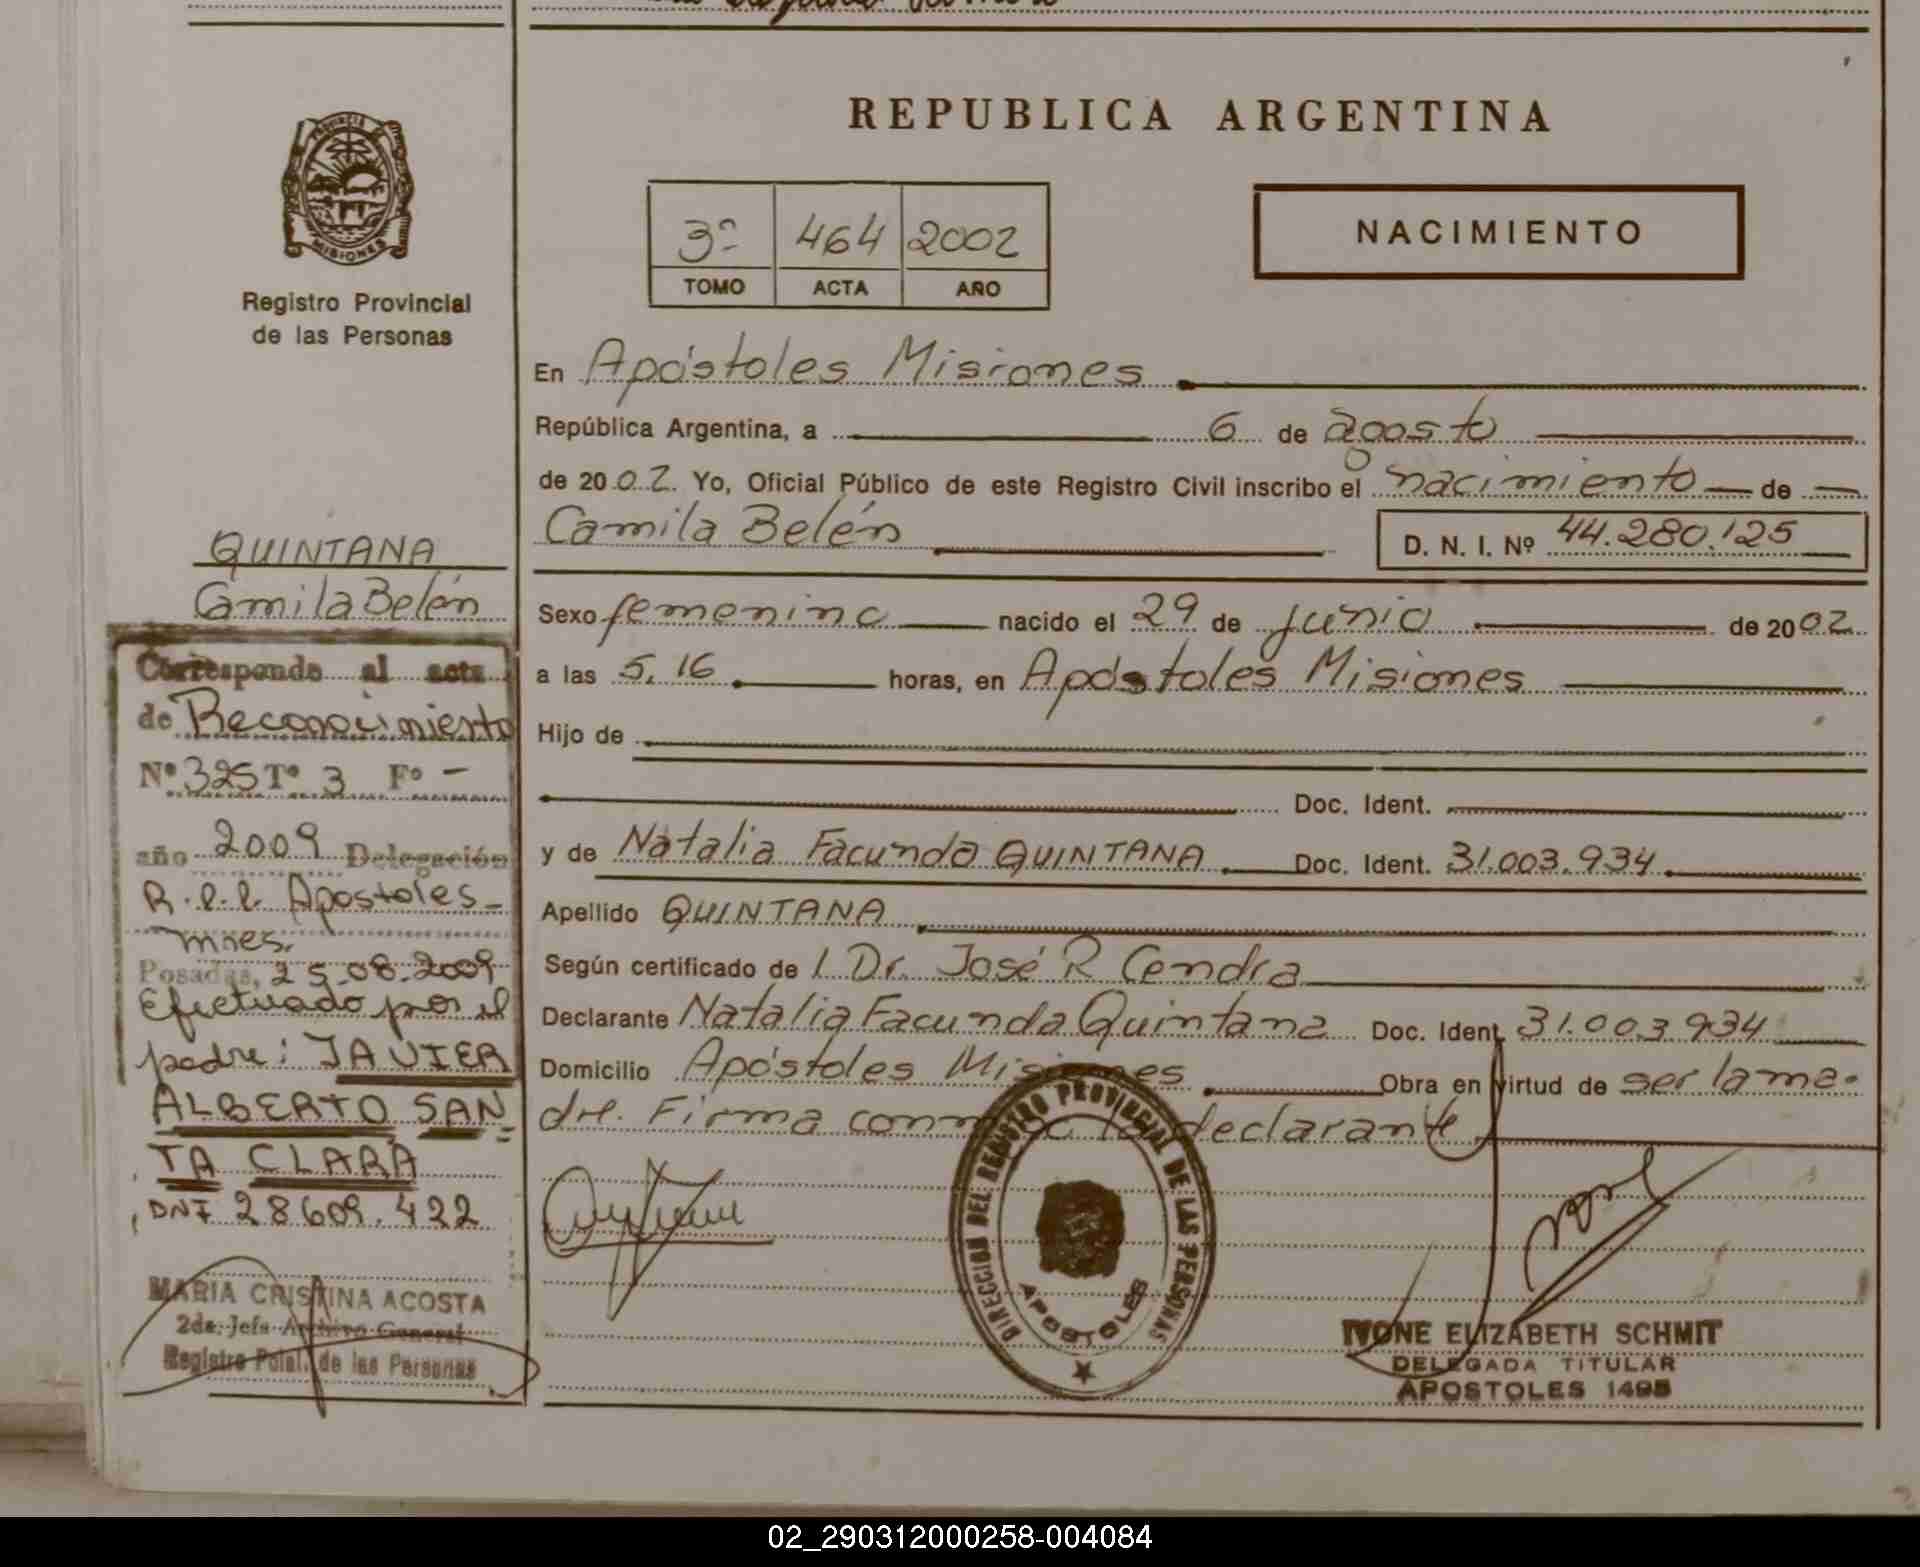 REPUBLICA ARGENTINA
PROVINCIA DE
MISIONES
Registro Provincial
de las Personas
3º 464 2002
TOMO ACTA AÑO
NACIMIENTO
En Apóstoles Misiones
República Argentina, a 6 de agosto
de 2002. Yo, Oficial Público de este Registro Civil inscribo el nacimiento de
Camila Belén D. N. I. Nº 44.280.125
Sexo femenino nacido el 29 de junio de 2002
a las 5,16 horas, en Apóstoles Misiones
Hijo de
Doc. Ident.
y de Natalia Facunda QUINTANA Doc. Ident. 31.003.934
Apellido QUINTANA
Según certificado de l Dr. José R Cendra
Declarante Natalia Facunda Quintana Doc. Ident. 31.003.934
Domicilio Apóstoles Misiones Obra en virtud de ser la ma-
dre. Firma conmigo la declarante
DIRECCION DEL REGISTRO PROVINCIAL DE LAS PERSONAS
APOSTOLES
IVONE ELIZABETH SCHMIT
DELEGADA TITULAR
APOSTOLES 1495
QUINTANA
Camila Belén
Corresponde al acta
de Reconocimiento
Nº 325 Tº 3 Fº -
año 2009 Delegación
R.P.P. Apostoles-
Mnes.
Posadas, 25-08-2009
Efectuado por el
padre: JAVIER
ALBERTO SAN-
TA CLARA
DNI 28609.422
MARIA CRISTINA ACOSTA
2da. Jefa Archivo General
Registro Pcial. de las Personas
02_290312000258-004084